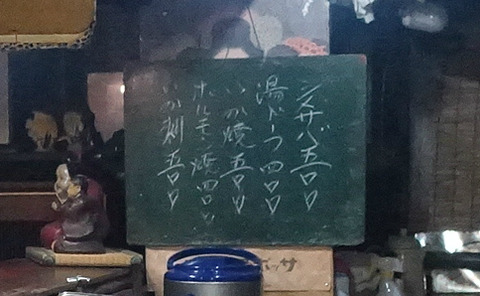 シメサバ五〇〇
湯ドーフ四〇〇
いか焼五〇〇
ホルモン焼四〇〇
いか刺五〇〇